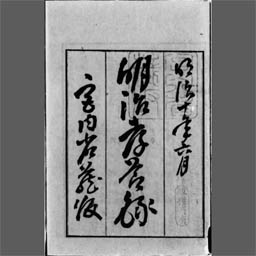 明治十年六月
明治孝節録
宮内省蔵版